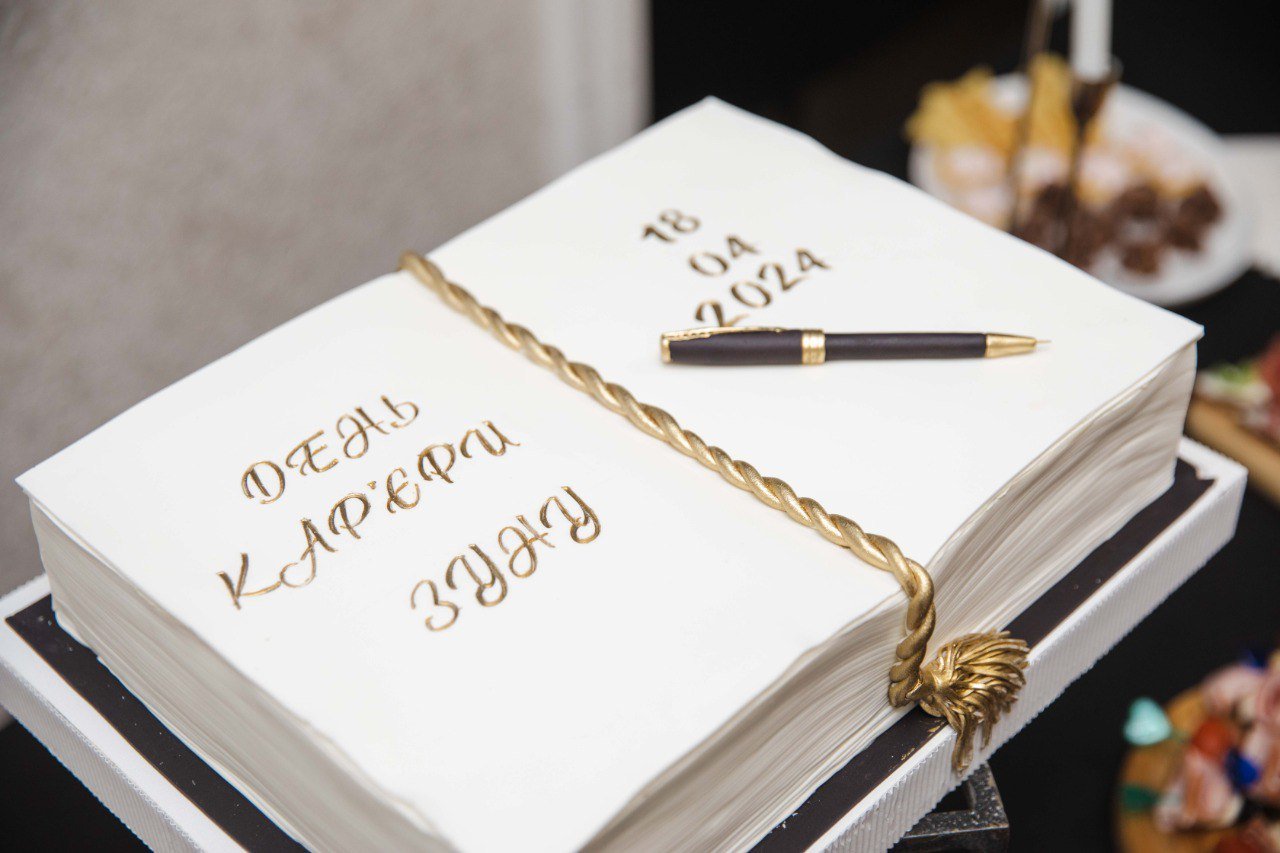 ДЕНЬ
КАР'ЄРИ
ЗУНУ
18
04
2024